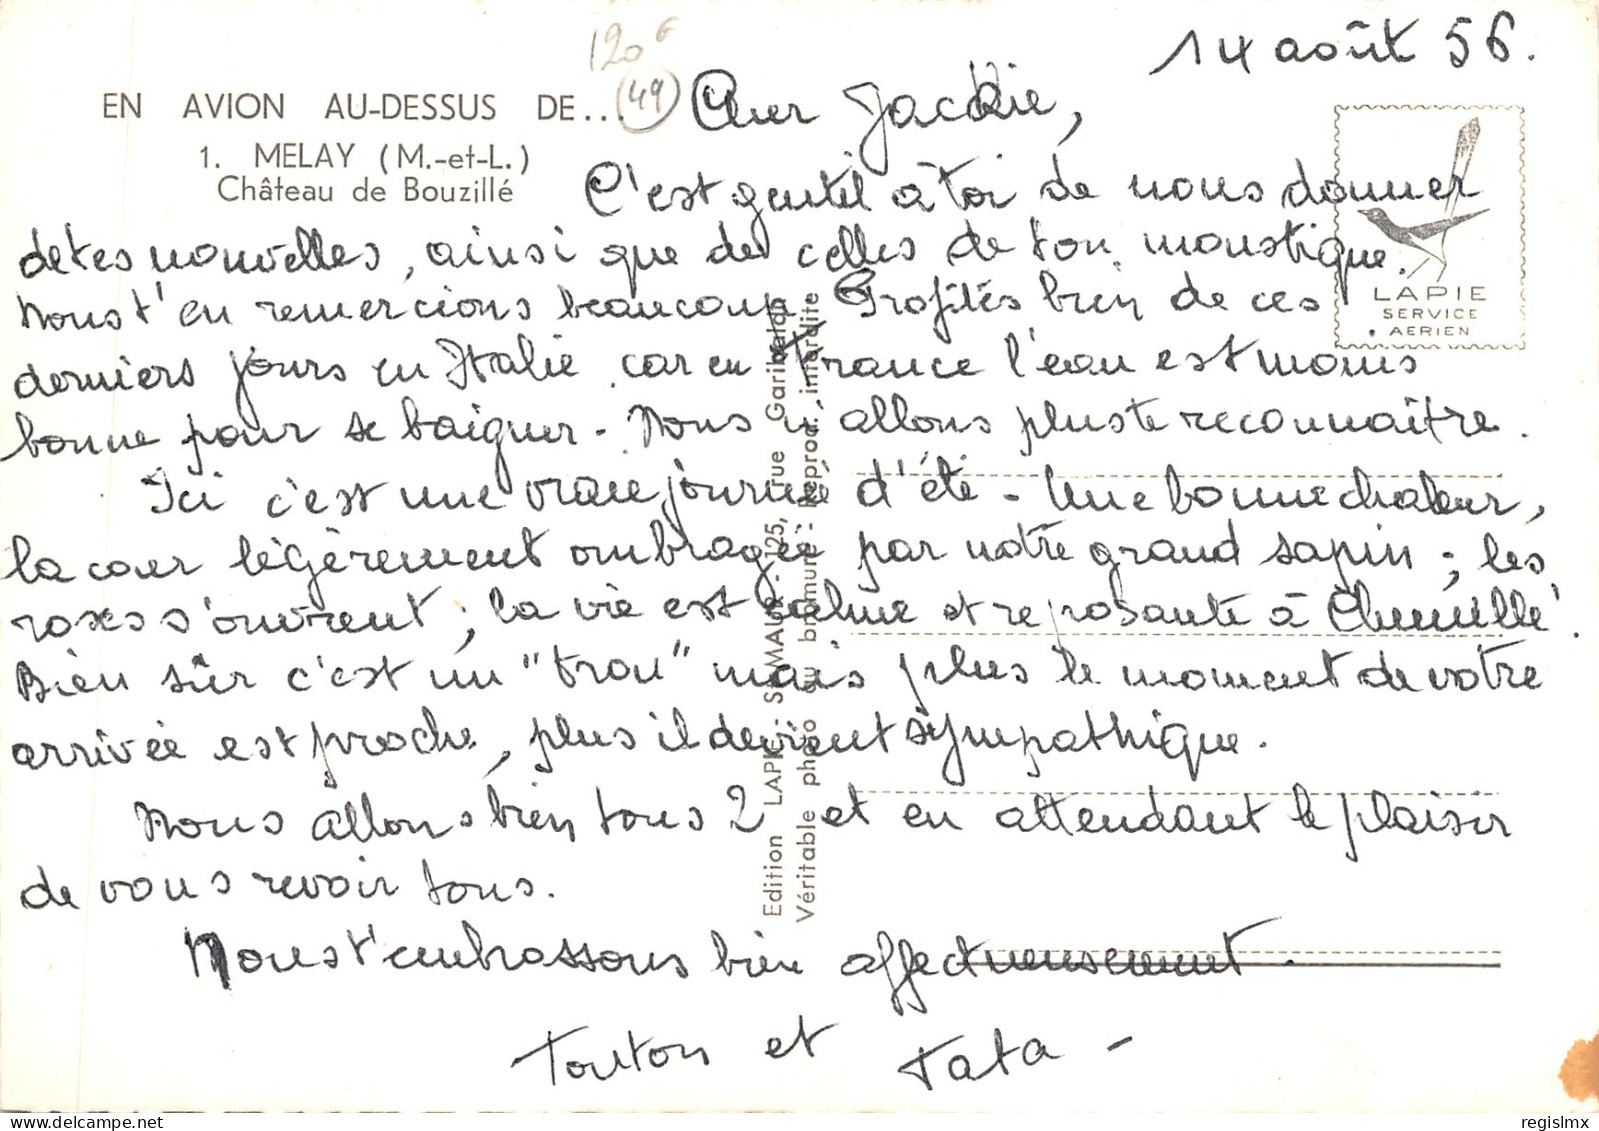 14 août 56.
120 F
(49)
EN AVION AU-DESSUS DE...
1. MELAY (M.-et-L.)
Château de Bouzillé
LAPIE
SERVICE
AERIEN
Cher Jackie,
C'est gentil à toi de nous donner
de tes nouvelles, ainsi que de celles de ton moustique.
Nous t'en remercions beaucoup. Profites bien de ces
derniers jours en Italie car en France l'eau est moins
bonne pour se baigner - Nous n'allons plus te reconnaître.
Ici c'est une vraie journée d'été - Une bonne chaleur,
la cour légèrement ombragée par notre grand sapin ; les
roses s'ouvrent ; la vie est calme et reposante à Chemillé.
Bien sûr c'est un "trou" mais plus le moment de votre
arrivée est proche, plus il devient sympathique.
Nous allons bien tous 2 et en attendant le plaisir
de vous revoir tous.
Nous t'embrassons bien affectueusement.
Tonton et Tata -
Edition LAPIE - St-MAUR - 125, rue Garibaldi
Véritable photo au bromure - Reprod. interdite
regislmx